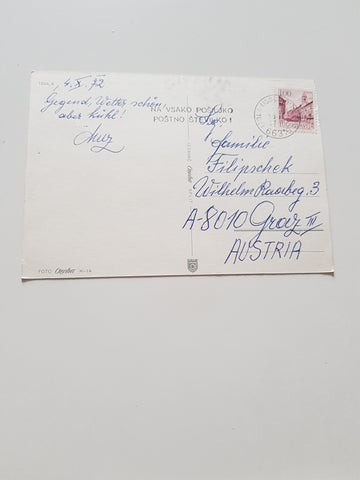 IZOLA
4. X. 72
Gegend, Wetter schön,
aber kühl!
NA VSAKO POŠILJKO
POŠTNO ŠTEVILKO!
1.00
Familie
Filipschek
Wilhelm Raabeg. 3
A-8010 Graz IV
AUSTRIA
FOTO